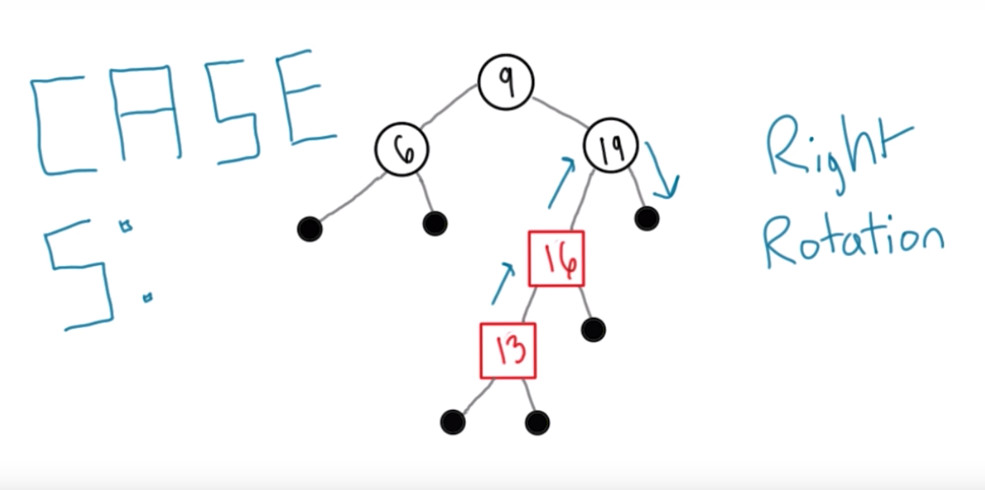 CASE
5:
9
6
19
16
13
Right
Rotation